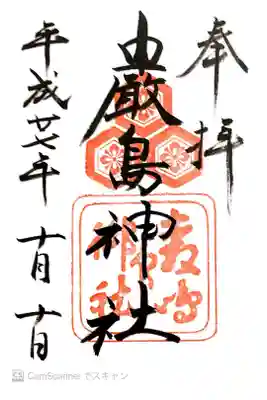 奉拝
嚴島神社
嚴島
神社
平成廿七年 十月十日
CS CamScanner でスキャン